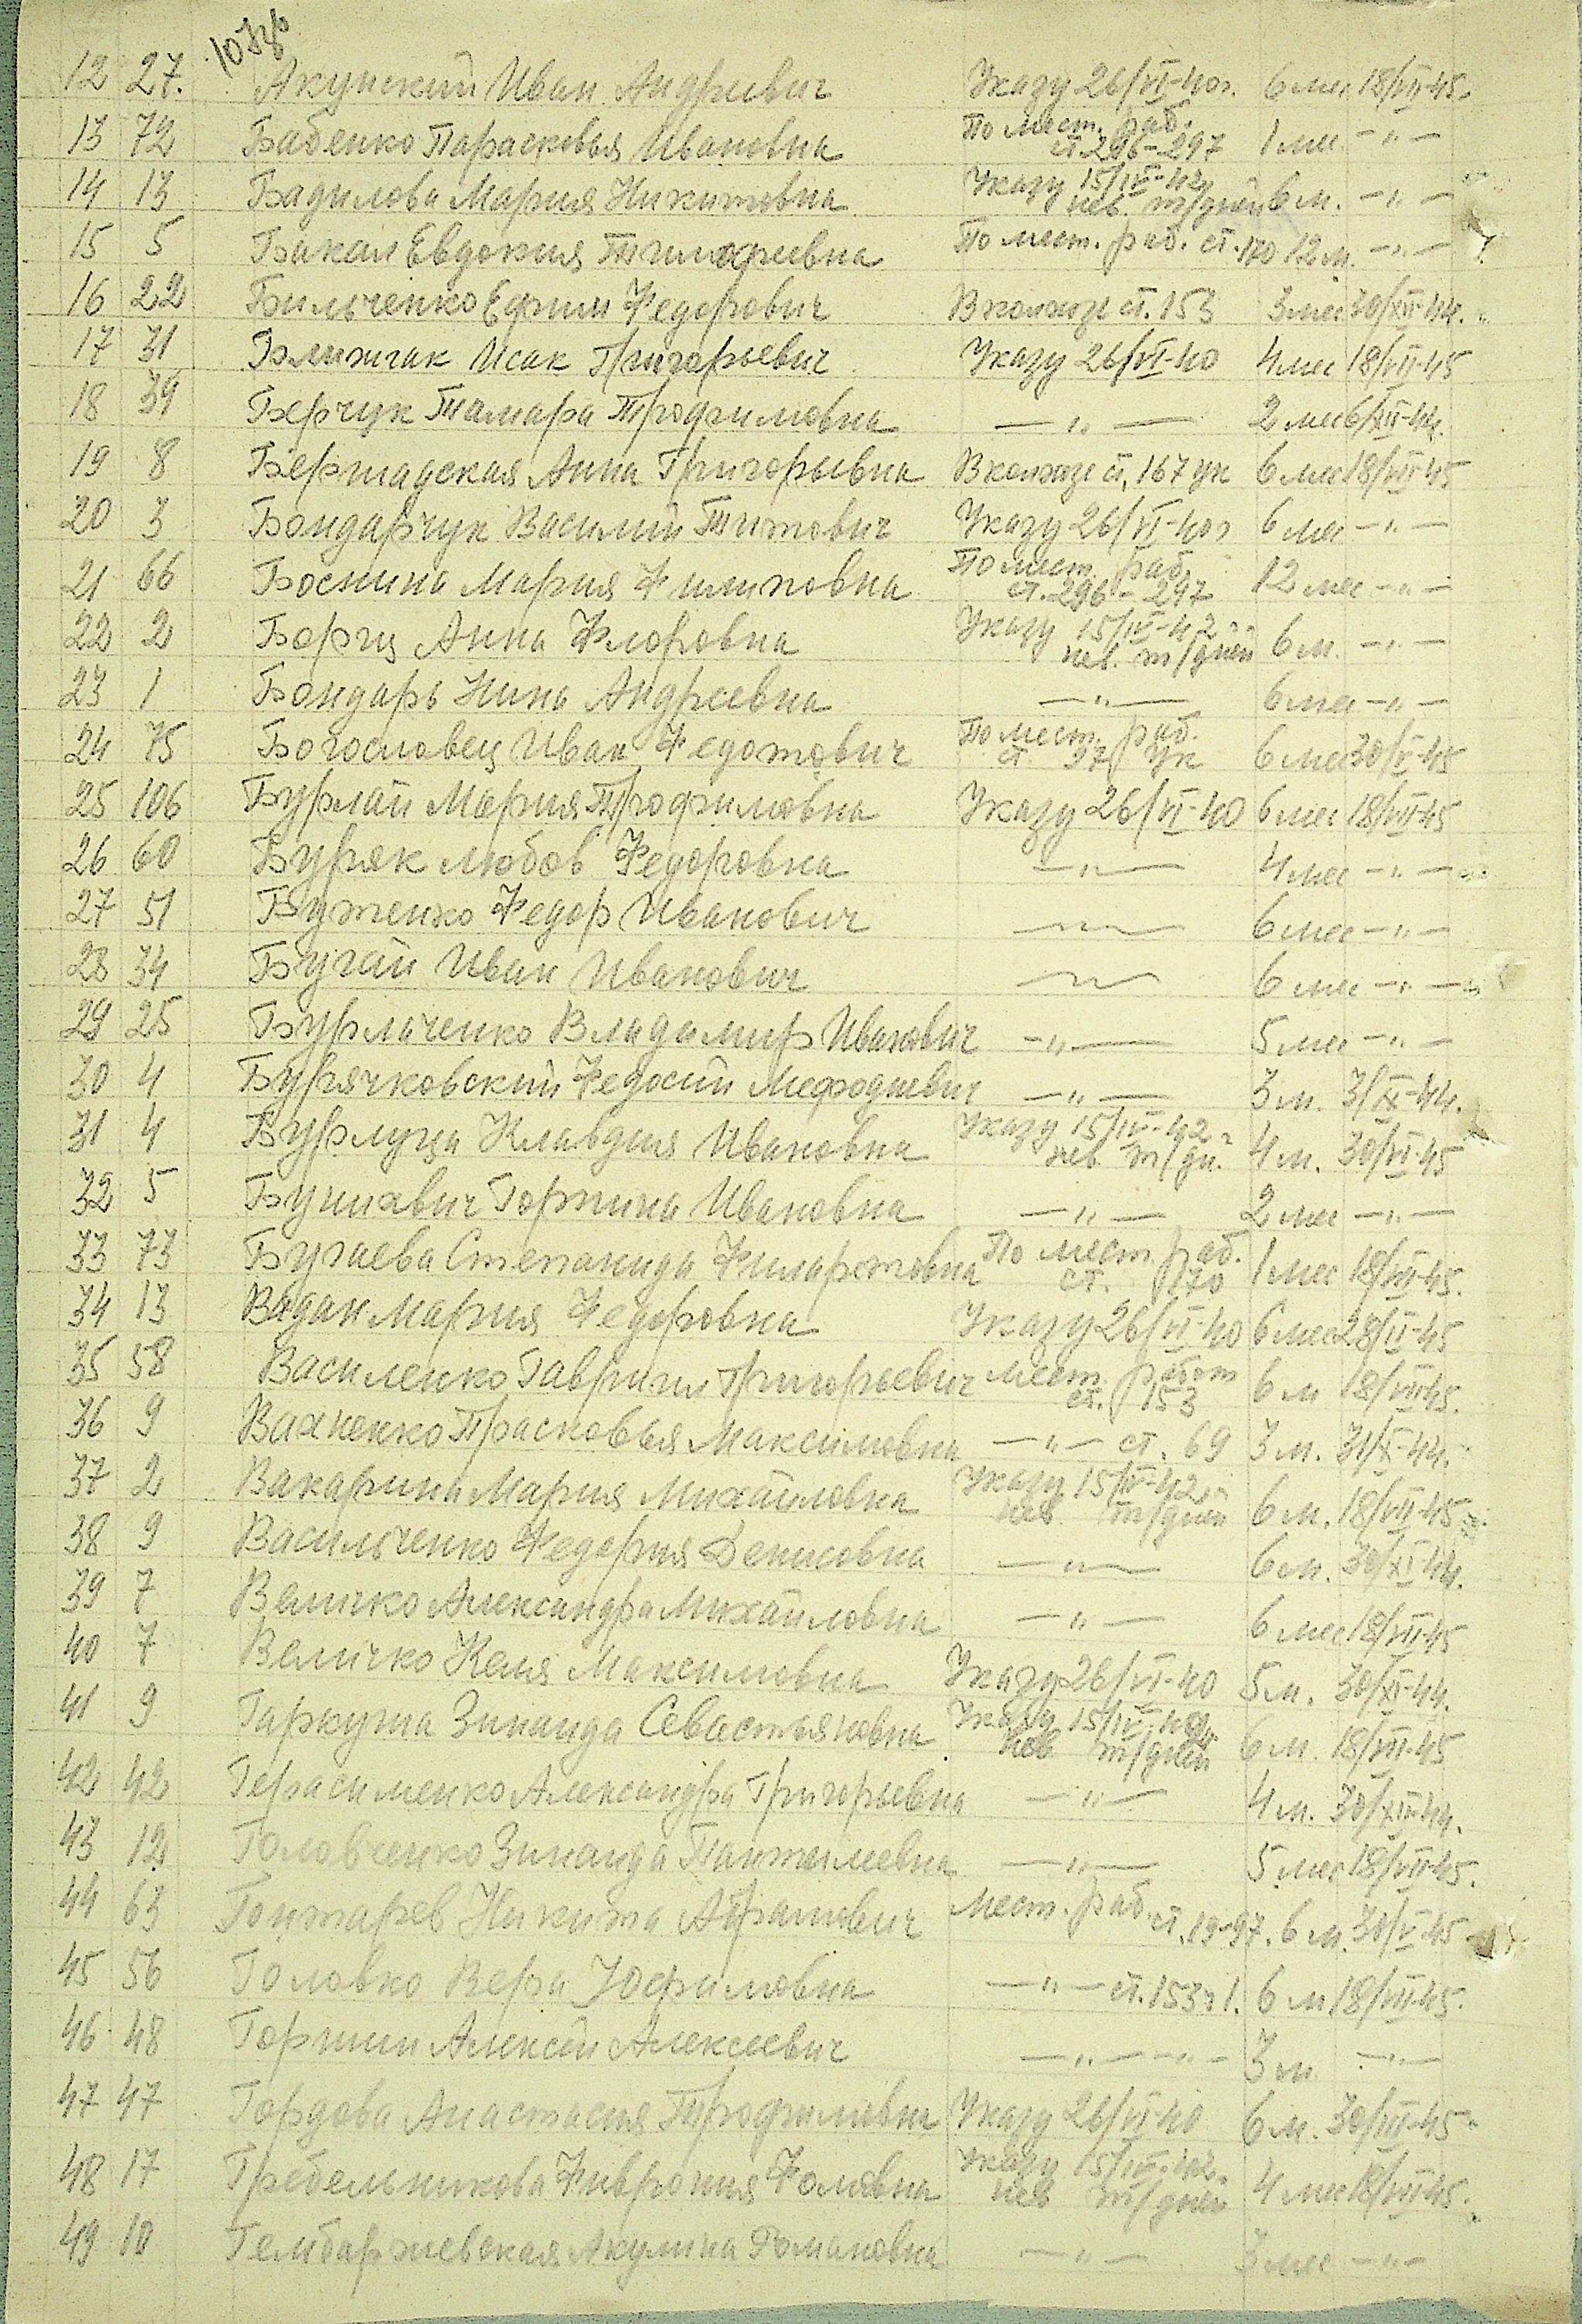 12 27. Акунский Иван Андреевич Указу 26/VI-40г. 6 мес 18/VII-45.
13 72 Бабенко Парасковья Ивановна По мест. раб. ст. 296-297 1 мес —"—
14 13 Бадилова Мария Никитовна Указу 15/IV-42г нев. т/дней 6 м. —"—
15 5 Бакал Евдокия Тимофеевна По мест. раб. ст. 170 12 м. —"—
16 22 Бильченко Ефрим Федорович В колхозе ст. 153 3 мес 30/XII-44.
17 31 Ближчак Исак Григорьевич Указу 26/VI-40 4 мес 18/VII-45
18 39 Берчук Тамара Трофимовна —"— 2 мес 6/XII-44.
19 8 Бершадская Анна Григорьевна В колхозе ст. 167 ук 6 мес 18/VII-45
20 3 Бондарчук Василий Титович Указу 26/VI-40г 6 мес —"—
21 66 Боснина Мария Филиповна По мест. раб. ст. 296-297 12 мес —"—
22 2 Борщ Анна Флоровна Указу 15/IV-42 г. нев. т/дней 6 м. —"—
23 1 Бондарь Нина Андреевна —"— 6 мес —"—
24 75 Богословец Иван Федотович По мест. раб. ст. 97 Ук 6 мес 30/V-45
25 106 Бурлай Мария Трофимовна Указу 26/VI-40 6 мес 18/VII-45
26 60 Буряк Любов Федоровна —"— 4 мес —"—
27 51 Бутенко Федор Иванович —"— 6 мес —"—
28 34 Бугай Иван Иванович —"— 6 мес —"—
29 25 Бурлаченко Владимир Иванович —"— 5 мес —"—
30 4 Бурячковский Федосий Мефодиевич —"— 3 м. 3/IX-44.
31 4 Бурлуца Клавдия Ивановна Указу 15/IV-42 г нев. т/дн. 4 м. 30/VI-45
32 5 Горпина Ивановна —"— 2 мес —"—
33 73 Бугаева Степанида Филаретовна По мест. раб. ст. 170 1 мес 18/VII-45.
34 13 Вадан Мария Федоровна Указу 26/VI-40 6 мес 28/II-45
35 58 Василенко Гавриил Григорьевич мест. работ ст. 153 6 м 18/VII-45.
36 9 Вахненко Прасковья Максимовна —"— ст. 69 3 м. 31/X-44.
37 2 Вакарина Мария Михайловна Указу 15/IV-42 г. нев. т/дней 6 м. 18/VII-45
38 9 Васильченко Федория Денисовна —"— 6 м. 30/XI-44.
39 7 Величко Александра Михайловна —"— 6 мес 18/VII-45
40 7 Величко Келя Максимовна Указу 26/VI-40 5 м. 30/XI-44.
41 9 Гаркуша Зинаида Севастьяновна Указу 15/IV-42г. нев. т/дней 6 м. 18/VII-45
42 42 Герасименко Александра Григорьевна —"— 4 м. 30/XII-44.
43 12 Головченко Зинаида Пантилеевна —"— 5 мес 18/VII-45.
44 63 Гонтарев Никита Абрамович мест. раб. ст. 19-97. 6 м. 30/V-45
45 56 Головко Вера Юфимовна —"— ст. 153 ч 1. 6 м 18/VII-45.
46 48 Горшин Алексей Алексеевич —"— —"— 3 м —"—
47 47 Гордова Анастасия Трофимовна Указу 26/VI-40 6 м. 30/VII-45
48 17 Гребельникова Феврония Фомовна Указу 15/IV-42. нев т/дней 4 мес 18/VII-45.
49 10 Гембаржевская Акулина Романовна —"— 3 мес —"—